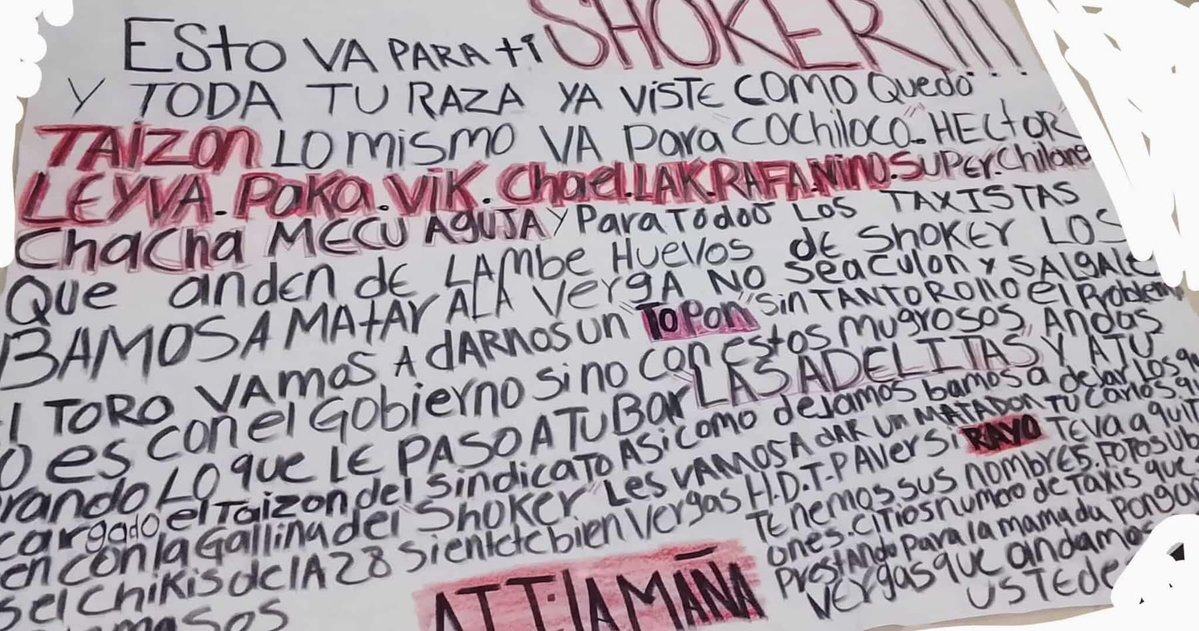 ESto VA PARA ti SHOKER!!!
Y TODA TU RAZA YA ViSTE COMO QUEDO...
TAiZON LO MiSMO VA PARA "COCHiLOCO".. HECTOR
LEYVA. PAKA. ViK. Chael. LAK. RAFA. NiNO. SUPER.
Chacha MECU AGUJA Y PARA TODOO LOS TAXISTAS
QUE ANDEN DE LAMBE HUEVOS DE SHOKER LOS
BAMOS A MATAR ALA VERGA NO SEA CULON Y SALGALE
TORO VAMOS A DARNOS UN "TOPON" SiN TANTO ROLLO El
ES CON El GOBIERNO SiNO CON ESTOS MUGROSOS ANDAS
LO QUE LE PASO A TU BAR LAS ADELITAS Y A TU
cargado el TAiZON DEL SiNDiCATO ASi COMO DEJAMOS BAMOS A DEJAR LOS
CON LA GALLiNA DEL "SHOKER" LES VAMOS A DAR UN MATADON TU CARLOS
El CHiKiS DE LA 28 SiENTETE BiEN VERGAS H.D.T.P A VER Si RAYO TE VA A
TENEMOS SUS NOMBRES. FOTOS
ONES. CiTiOS NUMERO DE TAXiS QUE
PRESTANDO PARA LA MAMADU
VERGAS QUE ANDAMOS
ATT: LA MAÑA